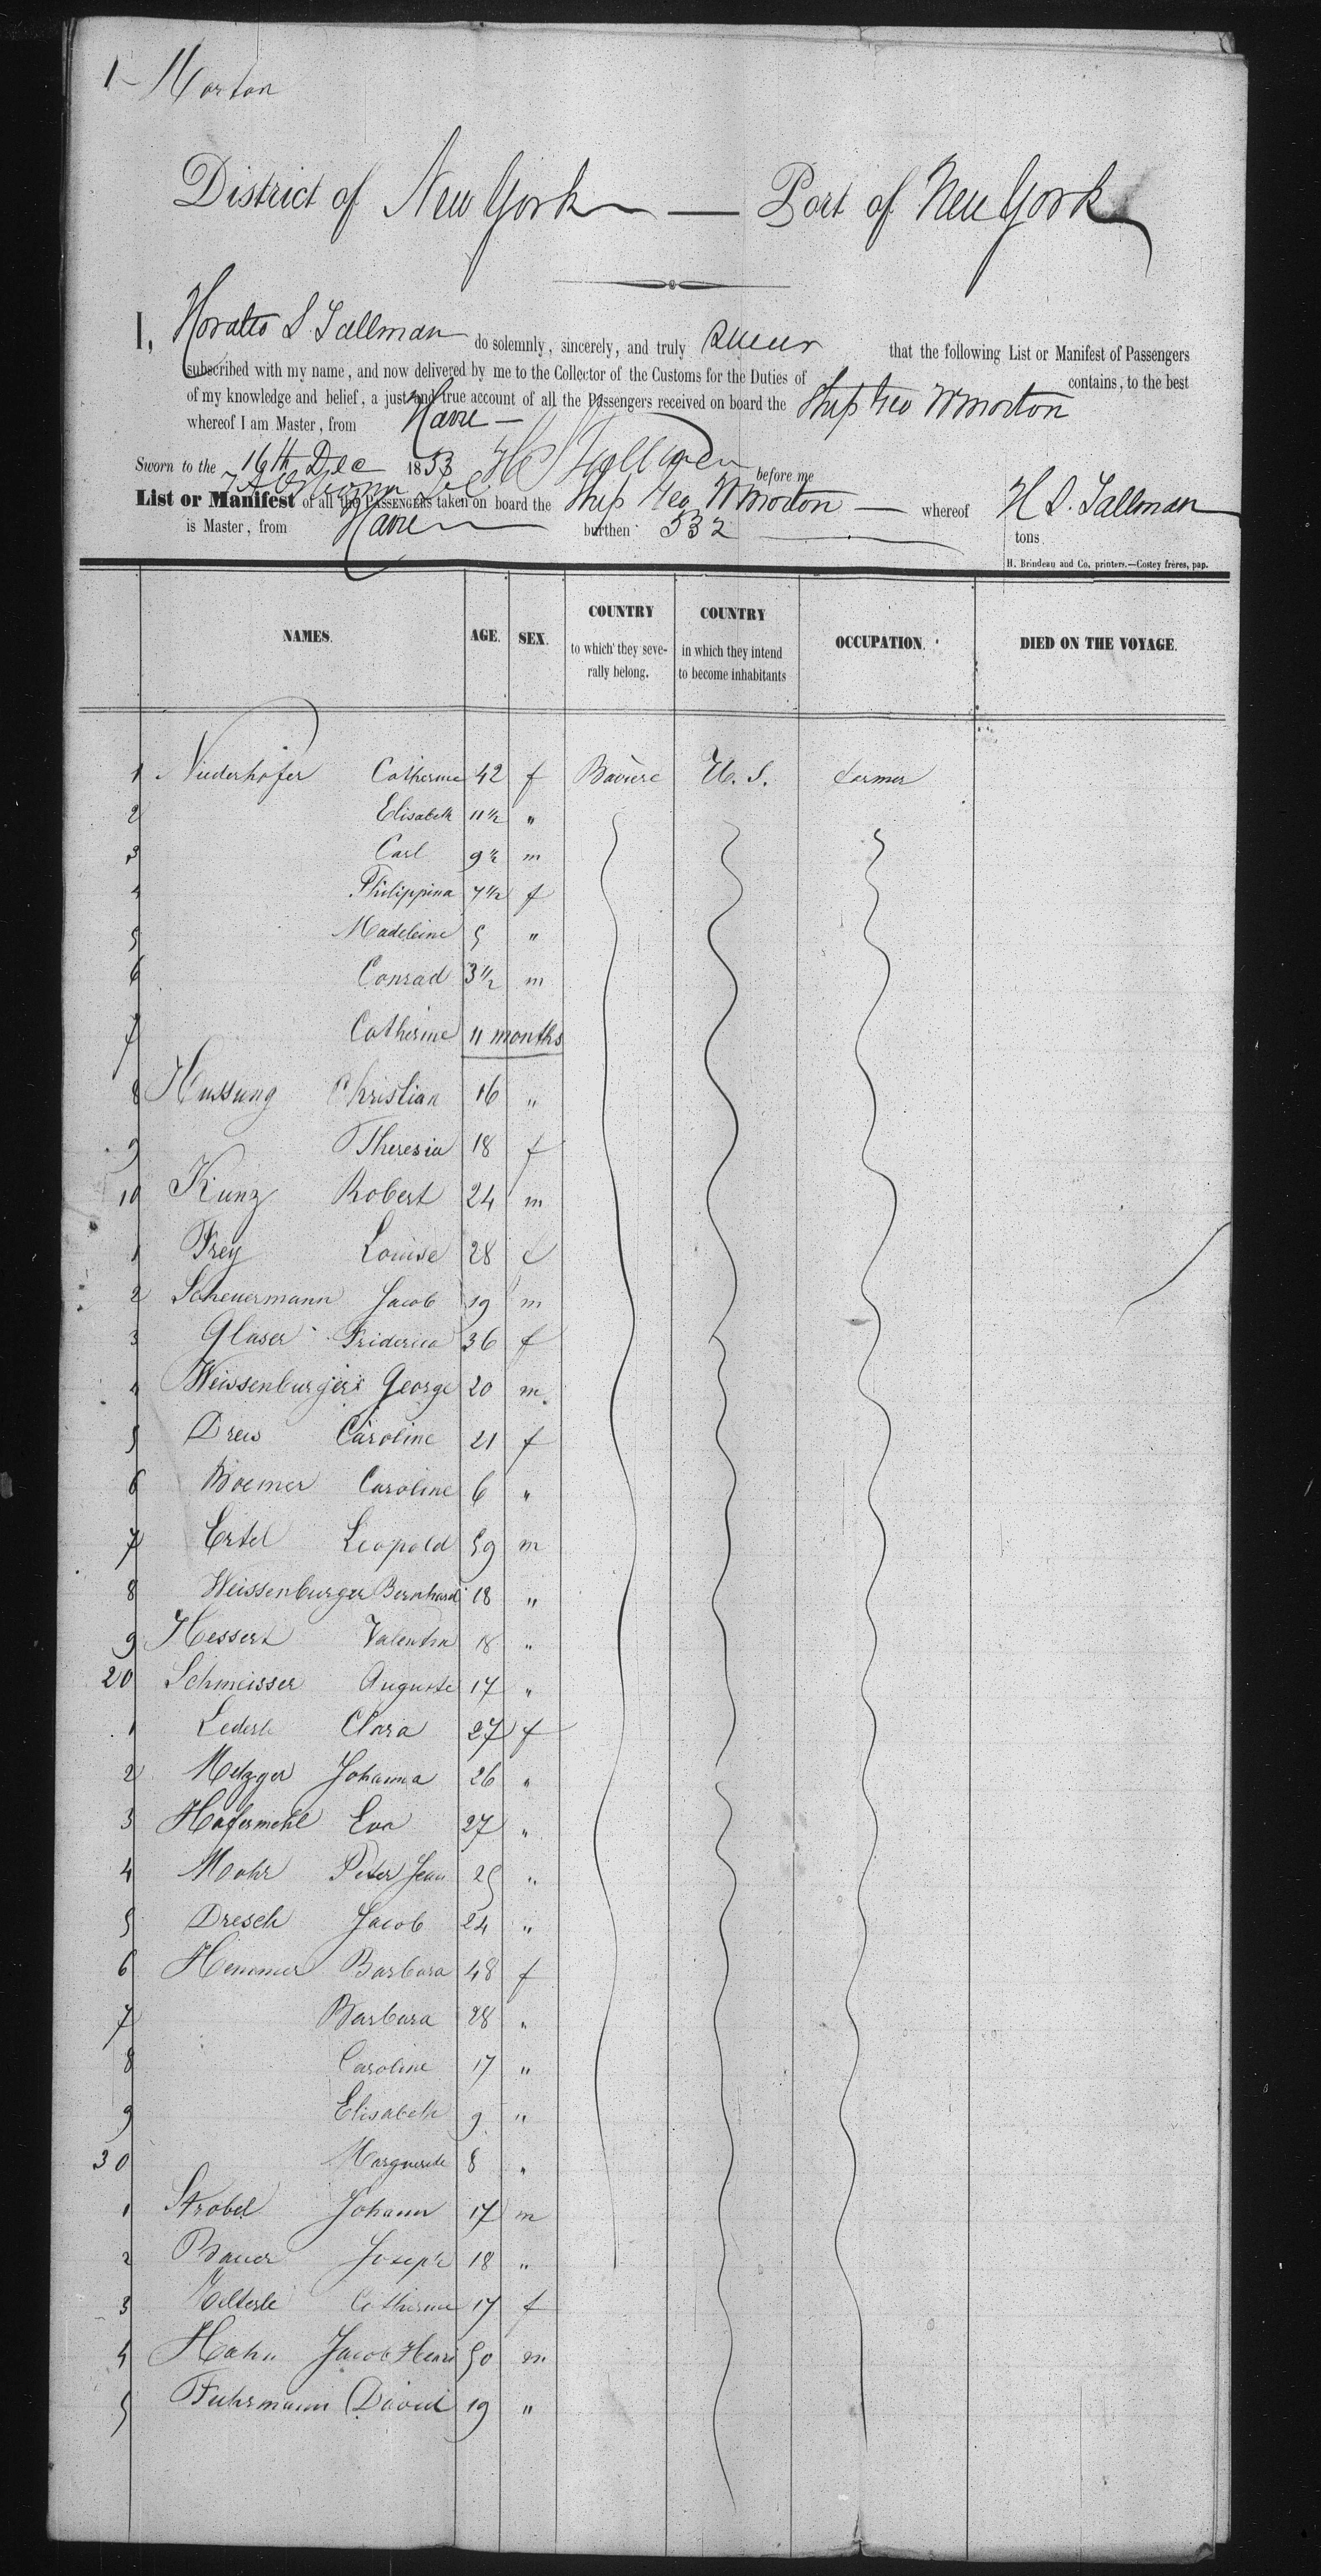 1 - Morton
District of New York — Port of New York
I, Horatio S. Tallman do solemnly, sincerely, and truly swear that the following List or Manifest of Passengers
subscribed with my name, and now delivered by me to the Collector of the Customs for the Duties of contains, to the best
of my knowledge and belief, a just and true account of all the Passengers received on board the Ship Geo W Morton
whereof I am Master, from Havre —
Sworn to the 16th Dec 1853 H S Tallman before me
List or Manifest of all the PASSENGERS taken on board the Ship Geo W Morton — whereof H S. Tallman
is Master, from Havre burthen 532 tons.
H. Brindeau and Co, printers.—Costey frères, pap.
NAMES. AGE. SEX. COUNTRY to which they seve- rally belong. COUNTRY in which they intend to become inhabitants OCCUPATION. DIED ON THE VOYAGE.
1 Niederhofer Catherine 42 f Baviere U. S. farmer
2 Elisabeth 11 1/2 "
3 Carl 9 1/2 m
4 Philippina 7 1/2 f
5 Madeleine 5 "
6 Conrad 3 1/2 m
7 Catherine 11 months
8 Hussung Christian 16 "
9 Theresia 18 f
10 Kunz Robert 24 m
1 Frey Louise 28 f
2 Scheuermann Jacob 19 m
3 Glaser Friderica 36 f
4 Weissenburger George 20 m
5 Drew Caroline 21 f
6 Boemer Caroline 6 "
7 Ertel Leopold 59 m
8 Weissenburger Bernhard 18 "
9 Hessert Valentin 18 "
20 Schmeisser Auguste 17 "
1 Lederle Clara 27 f
2 Metzger Johanna 26 "
3 Hafermehl Eva 27 "
4 Moohr Peter Jean 25 "
5 Dresch Jacob 24 "
6 Hemmer Barbara 48 f
7 Barbara 28 "
8 Caroline 17 "
9 Elisabeth 9 "
30 Marguerite 8 "
1 Strobel Johann 17 m
2 Bauer Joseph 18 "
3 Catherine 17 f
4 Hahn Jacob Henri 50 m
5 Fuhrmann David 19 "